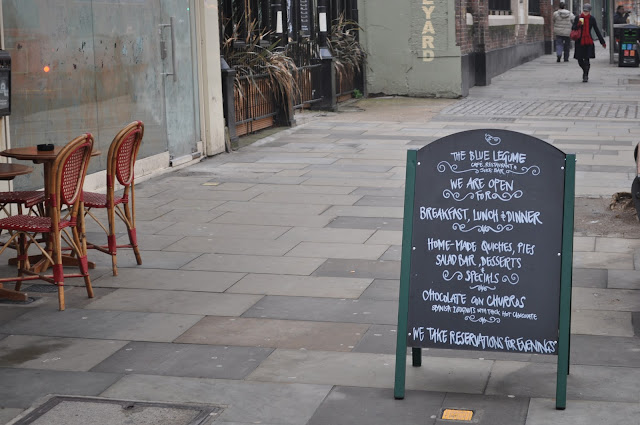 YARD
THE BLUE LEGUME
CAFE, RESTAURANT &
JUICE BAR
WE ARE OPEN
FOR
BREAKFAST, LUNCH + DINNER
HOME-MADE QUICHES, PIES
SALAD BAR, DESSERTS
+
SPECIALS
CHOCOLATE CON CHURROS
SPANISH DOUGHNUTS WITH THICK HOT CHOCOLATE
WE TAKE RESERVATIONS FOR EVENINGS